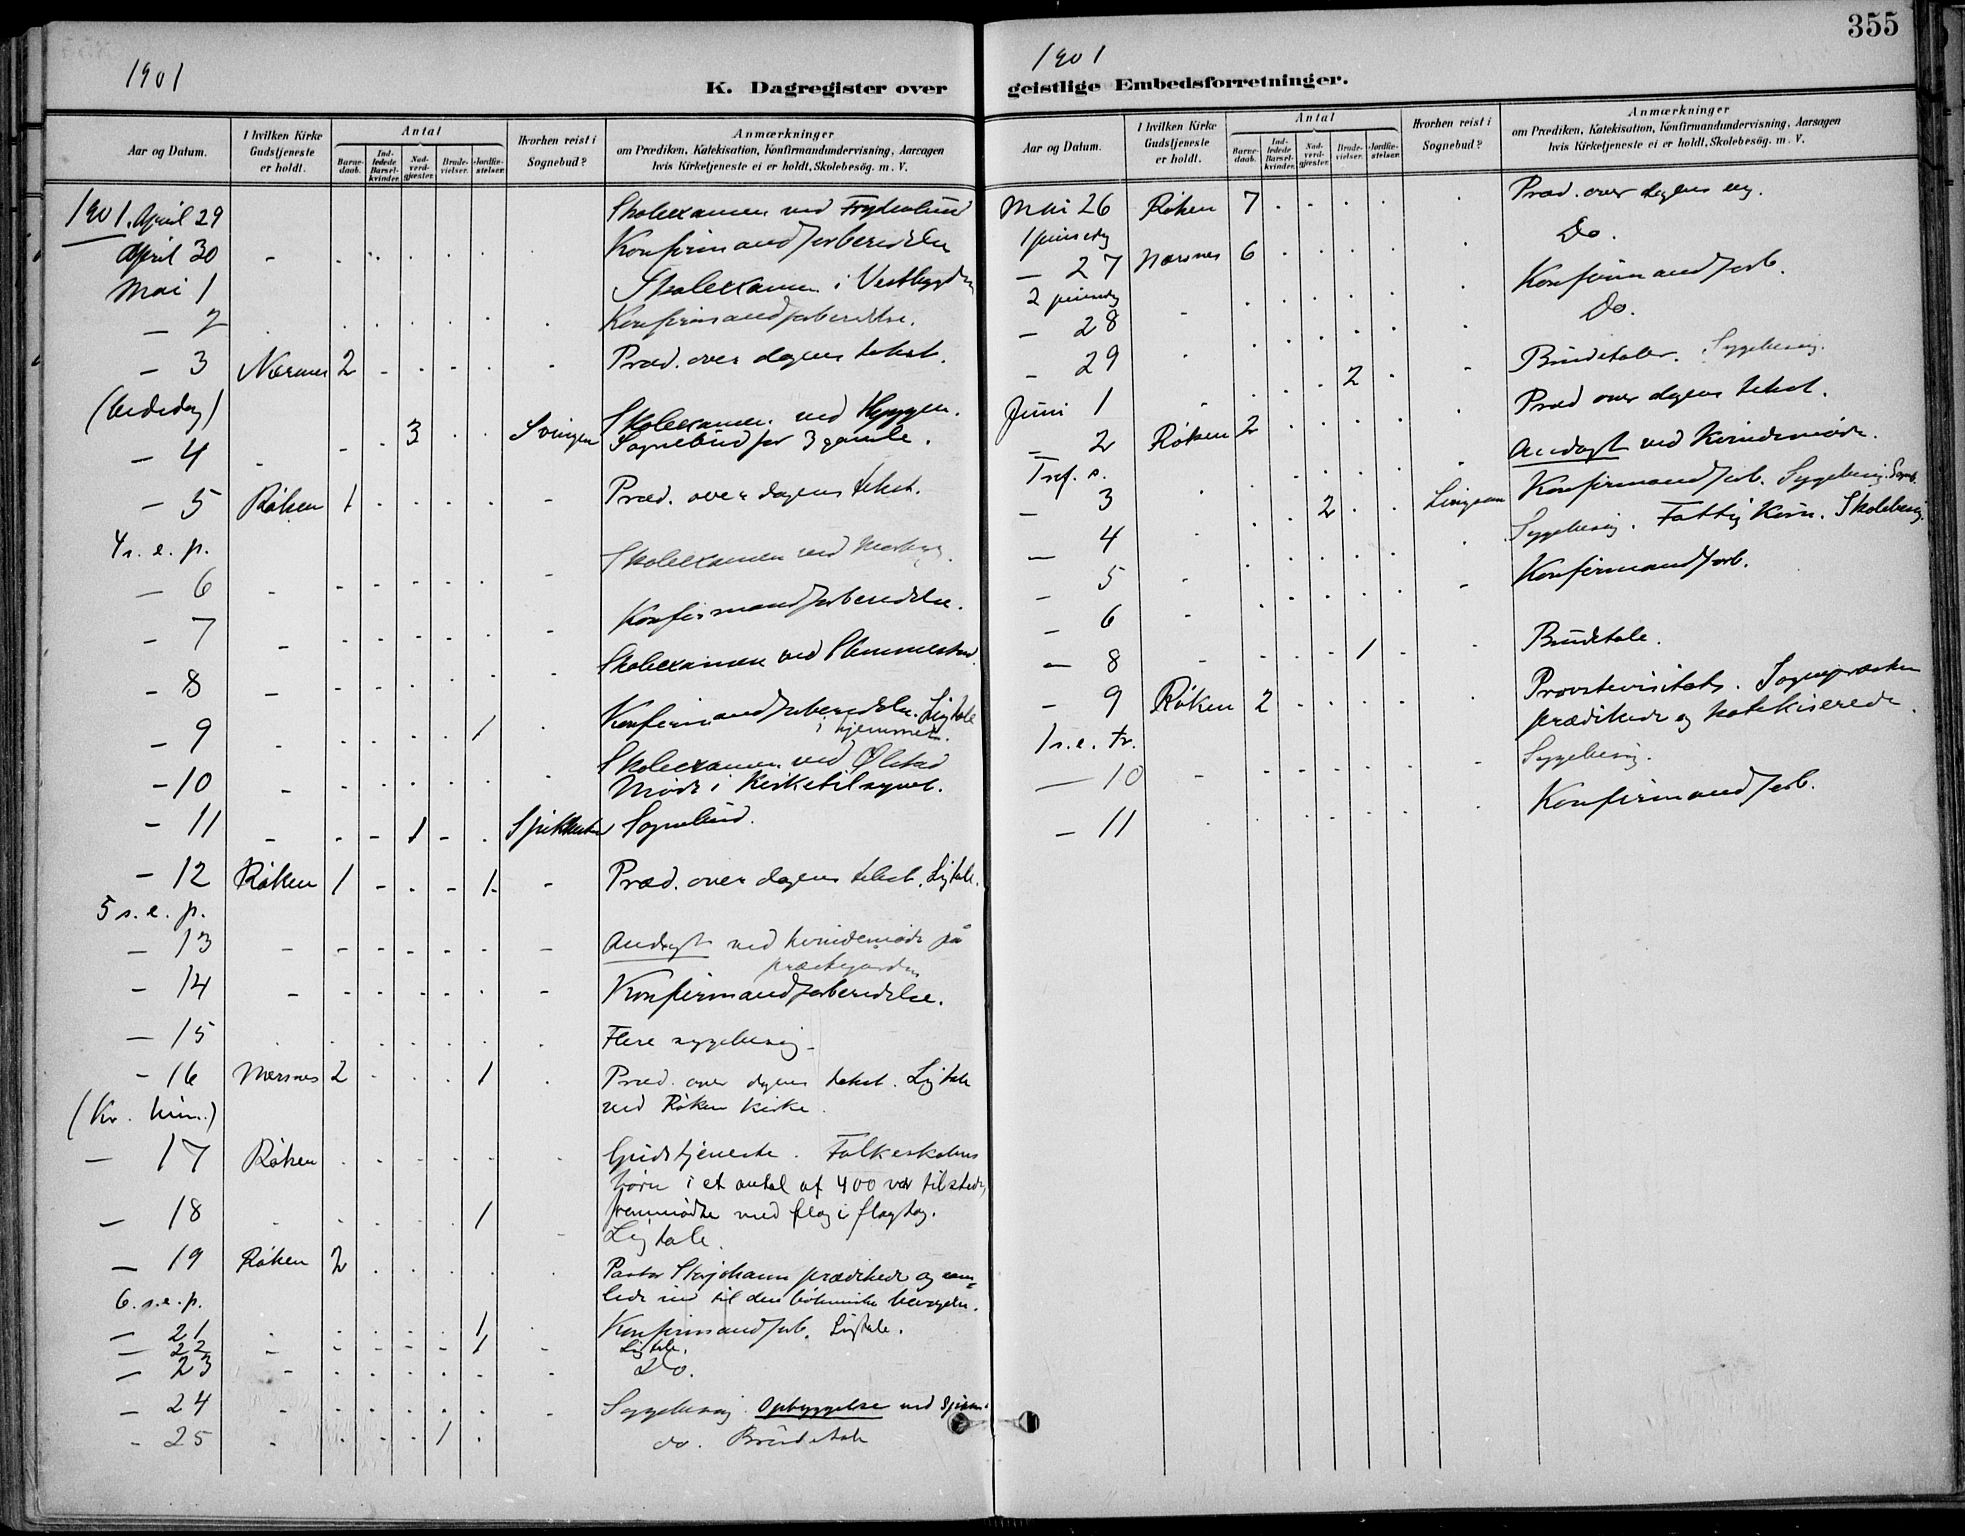 355
1901
K. Dagregister over
Aar og Datum.
I hvilken Kirke Gudstjeneste er holdt.
Antal
Barnedaab. Indledede Barselkvinder. Nadverdgjæster. Brudevielser. Jordfæstelser.
Hvorhen reist i Sognebud?
Anmærkninger
om Prædiken, Katekisation, Konfirmandundervisning, Aarsagen
hvis Kirketjeneste ei er holdt, Skolebesög. m. V.
1901. April 29 Skoleexamen ved
April 30 - Konfirmandforberedelse
Mai 1 Skoleexamen i Vestbygden
— 2 Konfirmandforberedelse.
— 3 Nærsnes 2 Præd. over dagens tekst.
(bededag)
— 4 3 Svingen Skoleexamen ved Hyggen.
Sognebud for 3 gamle.
— 5 Røken 1 Præd. over dagens tekst.
4 s. e. p.
— 6 Skoleexamen ved
— 7 Konfirmandforberedelse.
— 8 Skoleexamen ved Slemmestad.
— 9 1 Konfirmandforberedelse. Ligtale
i hjemmet.
— 10 Skoleexamen ved Ølstad
Møde i Kirketilsynet.
— 11 1 Spikkestad Sognebud.
— 12 Røken 1 1 Præd. over dagens tekst. Ligtale.
5 s. e. p.
— 13 Andagt ved kvindemøde på
præstegården
— 14 Konfirmandforberedelse.
— 15 Flere sygebesøg
— 16 Nærsnes 2 1 Præd. over dagens tekst. Ligtale
(Kr. him.) ved Røken kirke.
— 17 Røken Gudstjeneste. Folkeskolens
børn i et antal af 400 var tilstede,
— 18 1 fremmødte med flag i flagtog.
Ligtale.
— 19 Røken 2 Pastor Storjohann prædikede og sam-
6. s. e. p. lede ind til den bøhmiske bevægelse.
— 21 1 Konfirmandforb. Ligtale.
— 22 1 Ligtale.
— 23 Do.
— 24 Sygebesøg Opbyggelse ved
— 25 1 do. Brudetale
1901
geistlige Embedsforretninger.
Aar og Datum.
I hvilken Kirke Gudstjeneste er holdt.
Antal
Barnedaab. Indledede Barselkvinder. Nadverdgjæster. Brudevielser. Jordfæstelser.
Hvorhen reist i Sognebud?
Anmærkninger
om Prædiken, Katekisation, Konfirmandundervisning, Aarsagen
hvis Kirketjeneste ei er holdt, Skolebesög. m. V.
Mai 26 Røken 7 Præd. over dagens ev.
1 pinsedag
— 27 Nærsnes 6 Do.
2 pinsedag
— 28 Konfirmandforb.
— 29 Do.
Juni 1 2 Brudetaler. Sygebesøg.
— 2 Røken 2 Præd over dagens tekst.
Tref. s.
— 3 Andagt ved Kvindemøde.
— 4 2 Konfirmandforb. Sygebesøg.
— 5 Sygebesøg. Fattig Kom. Skolebesøg.
— 6 Konfirmandforb.
— 8 1 Brudetale.
— 9 Røken 2 Provstevisitats. Sognepræsten
1 s. e. tr. prædikede og katekiserede.
— 10 Sygebesøg.
— 11 Konfirmandforb.